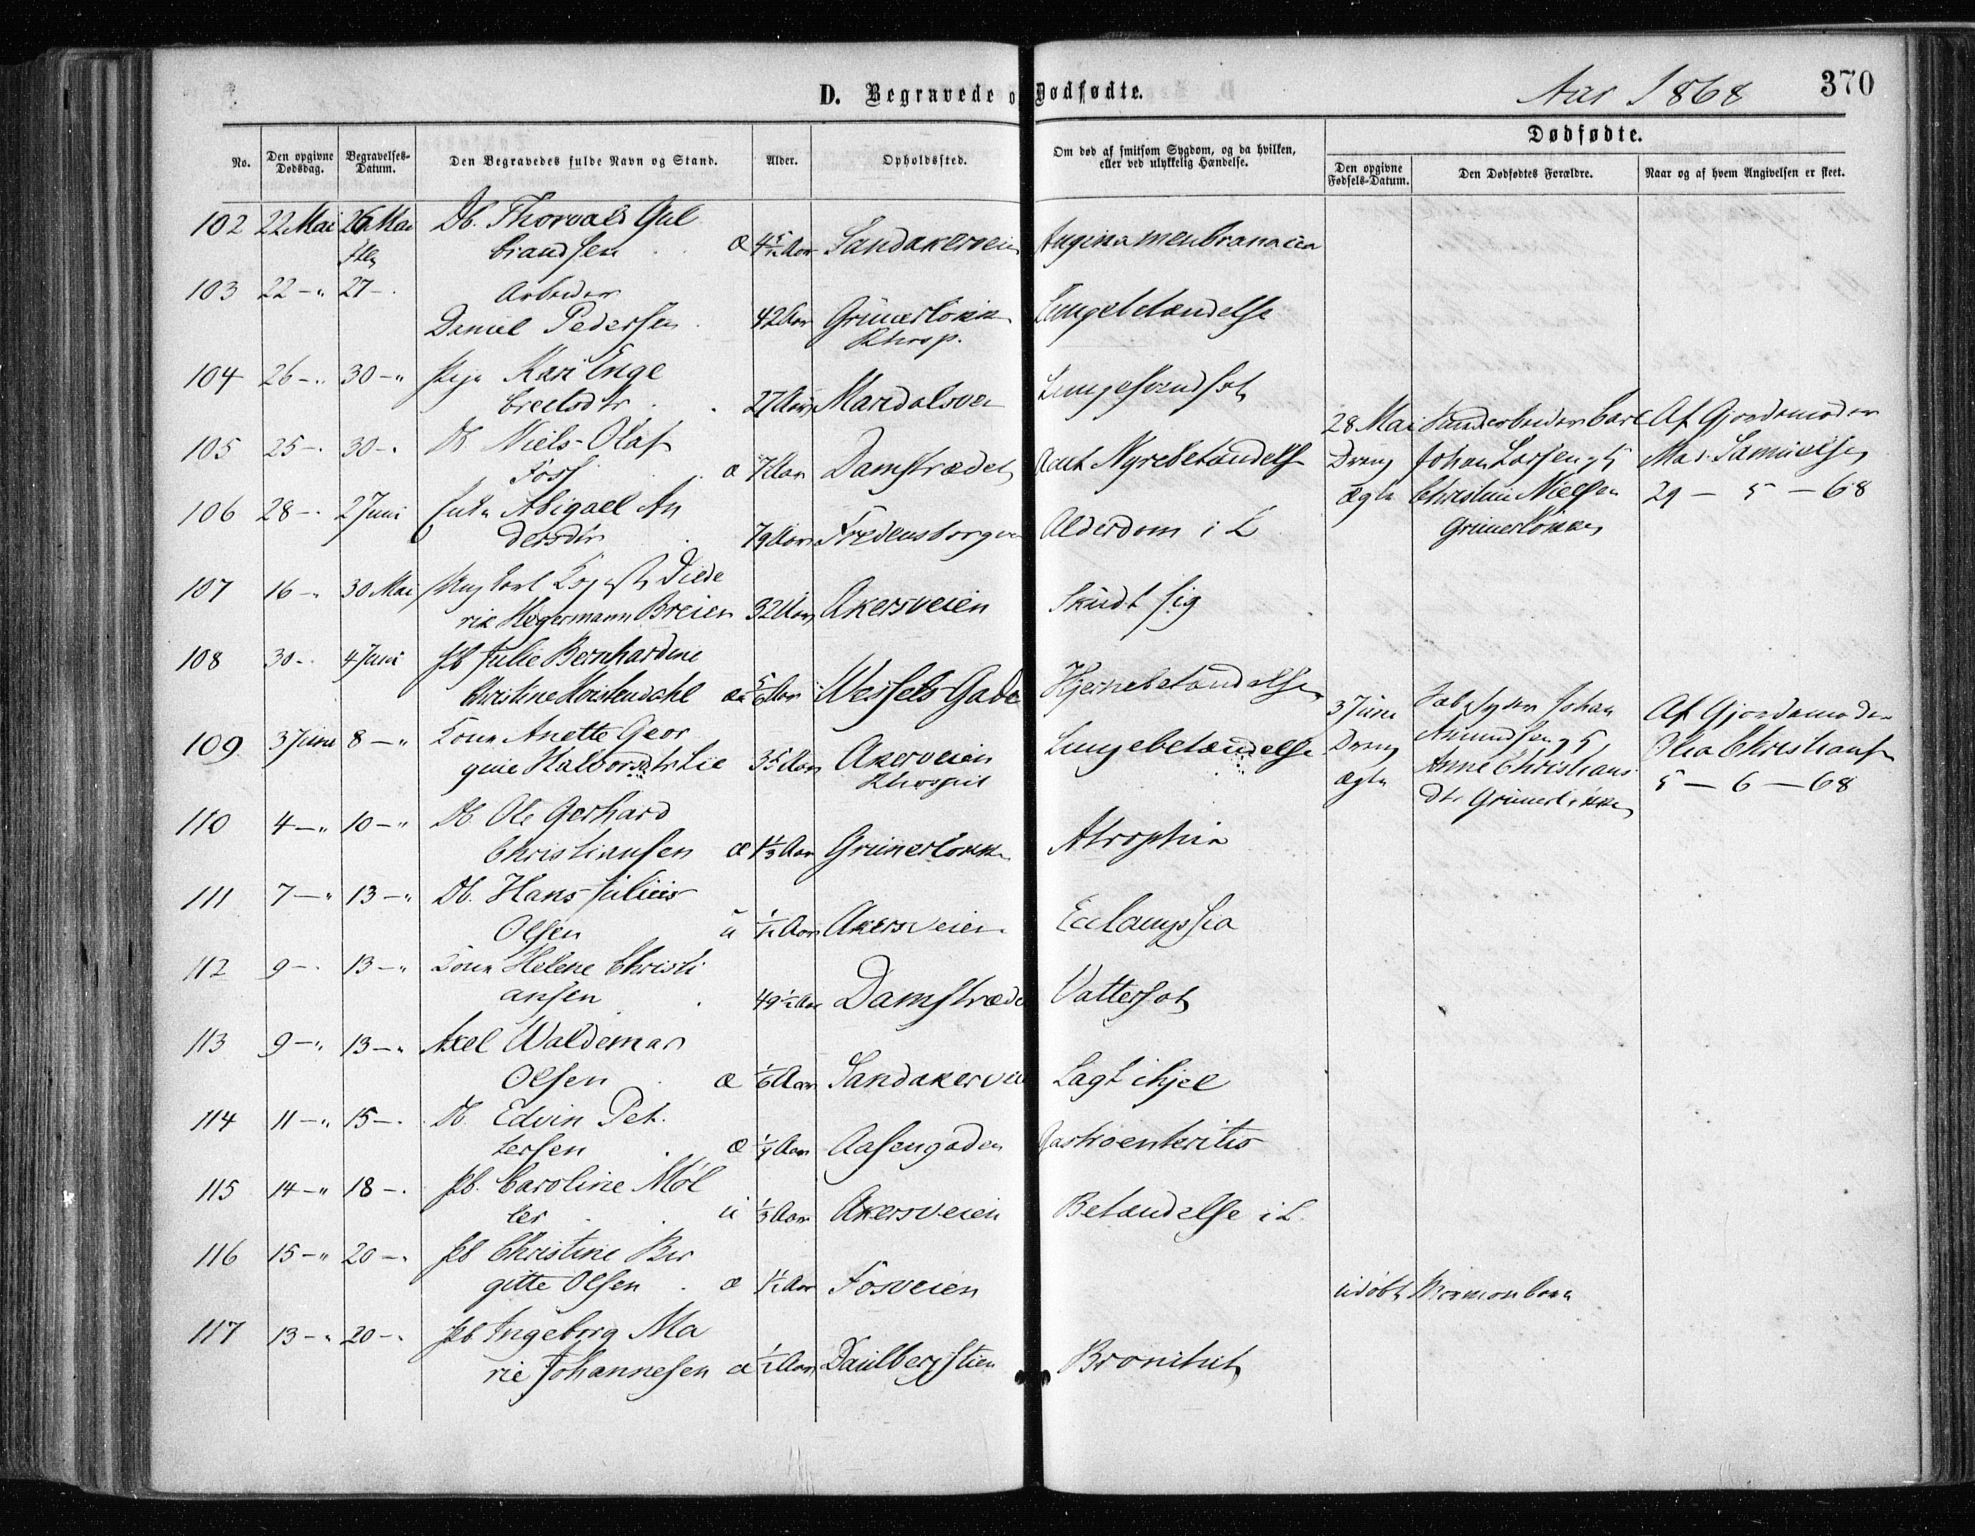 D. Begravede o Dødfødte.
Aar 1868
370
No.
Den opgivne Dødsdag.
Begravelses-Datum.
Den Begravedes fulde Navn og Stand.
Alder.
Opholdssted.
Om død af smitsom Sygdom, og da hvilken, eller ved ulykkelig Hændelse.
Dødfødte.
Den opgivne Fødsels-Datum.
Den Dødfødtes Forældre.
Naar og af hvem Angivelsen er skeet.
102 22 Mai 26 Mai Db. Thorvald Gul
brandsen æ 4 5/12 Aar Sandakerveien Angina menbranacia
103 22 — " 27 — Arbeider
Daniel Pedersen 42 Aar Grünerløkken Lungebetændelse
Rhosp.
104 26 — " 30 — " Pige Kari Enge
bretsdtr 27 Aar Maridalsvei Lungesvindsot
105 25 — 30 — Db Niels Olaf
Foss æ 7 Aar Damstrædet Acut Nyrebetændelse
28 Mai Carl Af Gjordemoder
Dreng Johan Larsen og Mad. Samuelsen
ægte Christine Nielsen 29 — 5 — 68
Grünerløkken
106 28 — 2 Juni Enke Abigael An
dersdtr 79 Aar Fredensborgvei Alderdom i L
107 16 — 30 Mai Carl August Diede
rik Hegermann Breien 32 Aar Akersveien Skudt sig
108 30 — 4 Juni Pb Julie Bernhardine
Christine æ 5/6 Aar Wessels Gade Hjernebetændelse
109 3 Juni 8 — " Kone Anette Geor
gine Halvorsdtr Lie 35 Aar Akerveien Lungebetændelse
Rhospit
3 Juni Johan Af Gjordemoder
Dreng Amundsen og Olea Christians
ægte Anne Christians 5 — 6 — 68
dtr Grünerløkken
110 4 — " 10 — " Db. Ole Gerhard
Christiansen æ 1 1/3 Aar Grünerløkken Atrophia
111 7 — " 13 — " Db. Hans Julius
Olsen u 1/12 Aar Akersveien Eclampsia
112 9 — 13 — " Kone Helene Christi
ansen 49 1/2 Aar Damstrædet Vattersot
113 9 — " 13 — " Axel Waldemar
Olsen æ 1/6 Aar Sandakervei Lagt ihjel
114 11 — " 15 — Db. Edvin Pet
tersen æ 1/4 Aar Aasengaden Gastroenteritis
115 14 — " 18 — Pb. Caroline Møl
ler u 1/3 Aar Akersveien Betændelse i L.
116 15 — " 20 — " Pb Christine Bir
gitte Olsen æ 1/2 Aar Fosveien udøbt Mormonbarn
117 13 — " 20 — Pb Ingeborg Ma
rie Johannesen æ 1/2 Aar Daulbergstien Bronchit